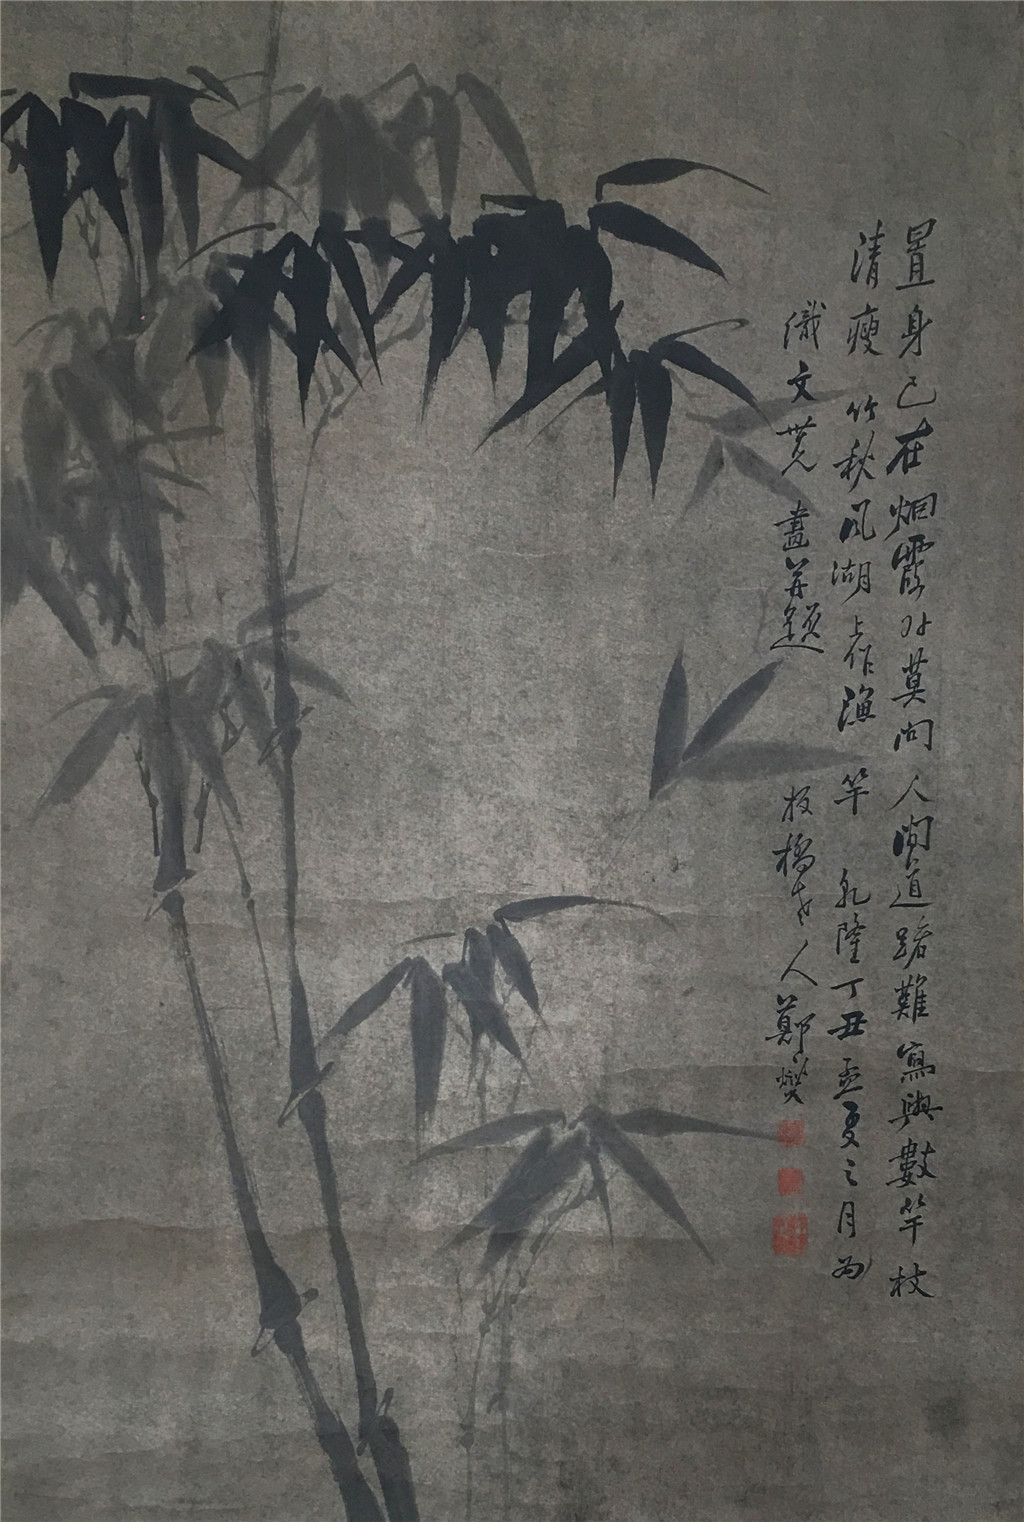 置身已在烟霞外莫问人间道路難寫與數竿枝
清瘦竹秋风湖上作漁竿 乾隆丁丑孟夏之月为
儀文 畫并题 板橋老人鄭燮